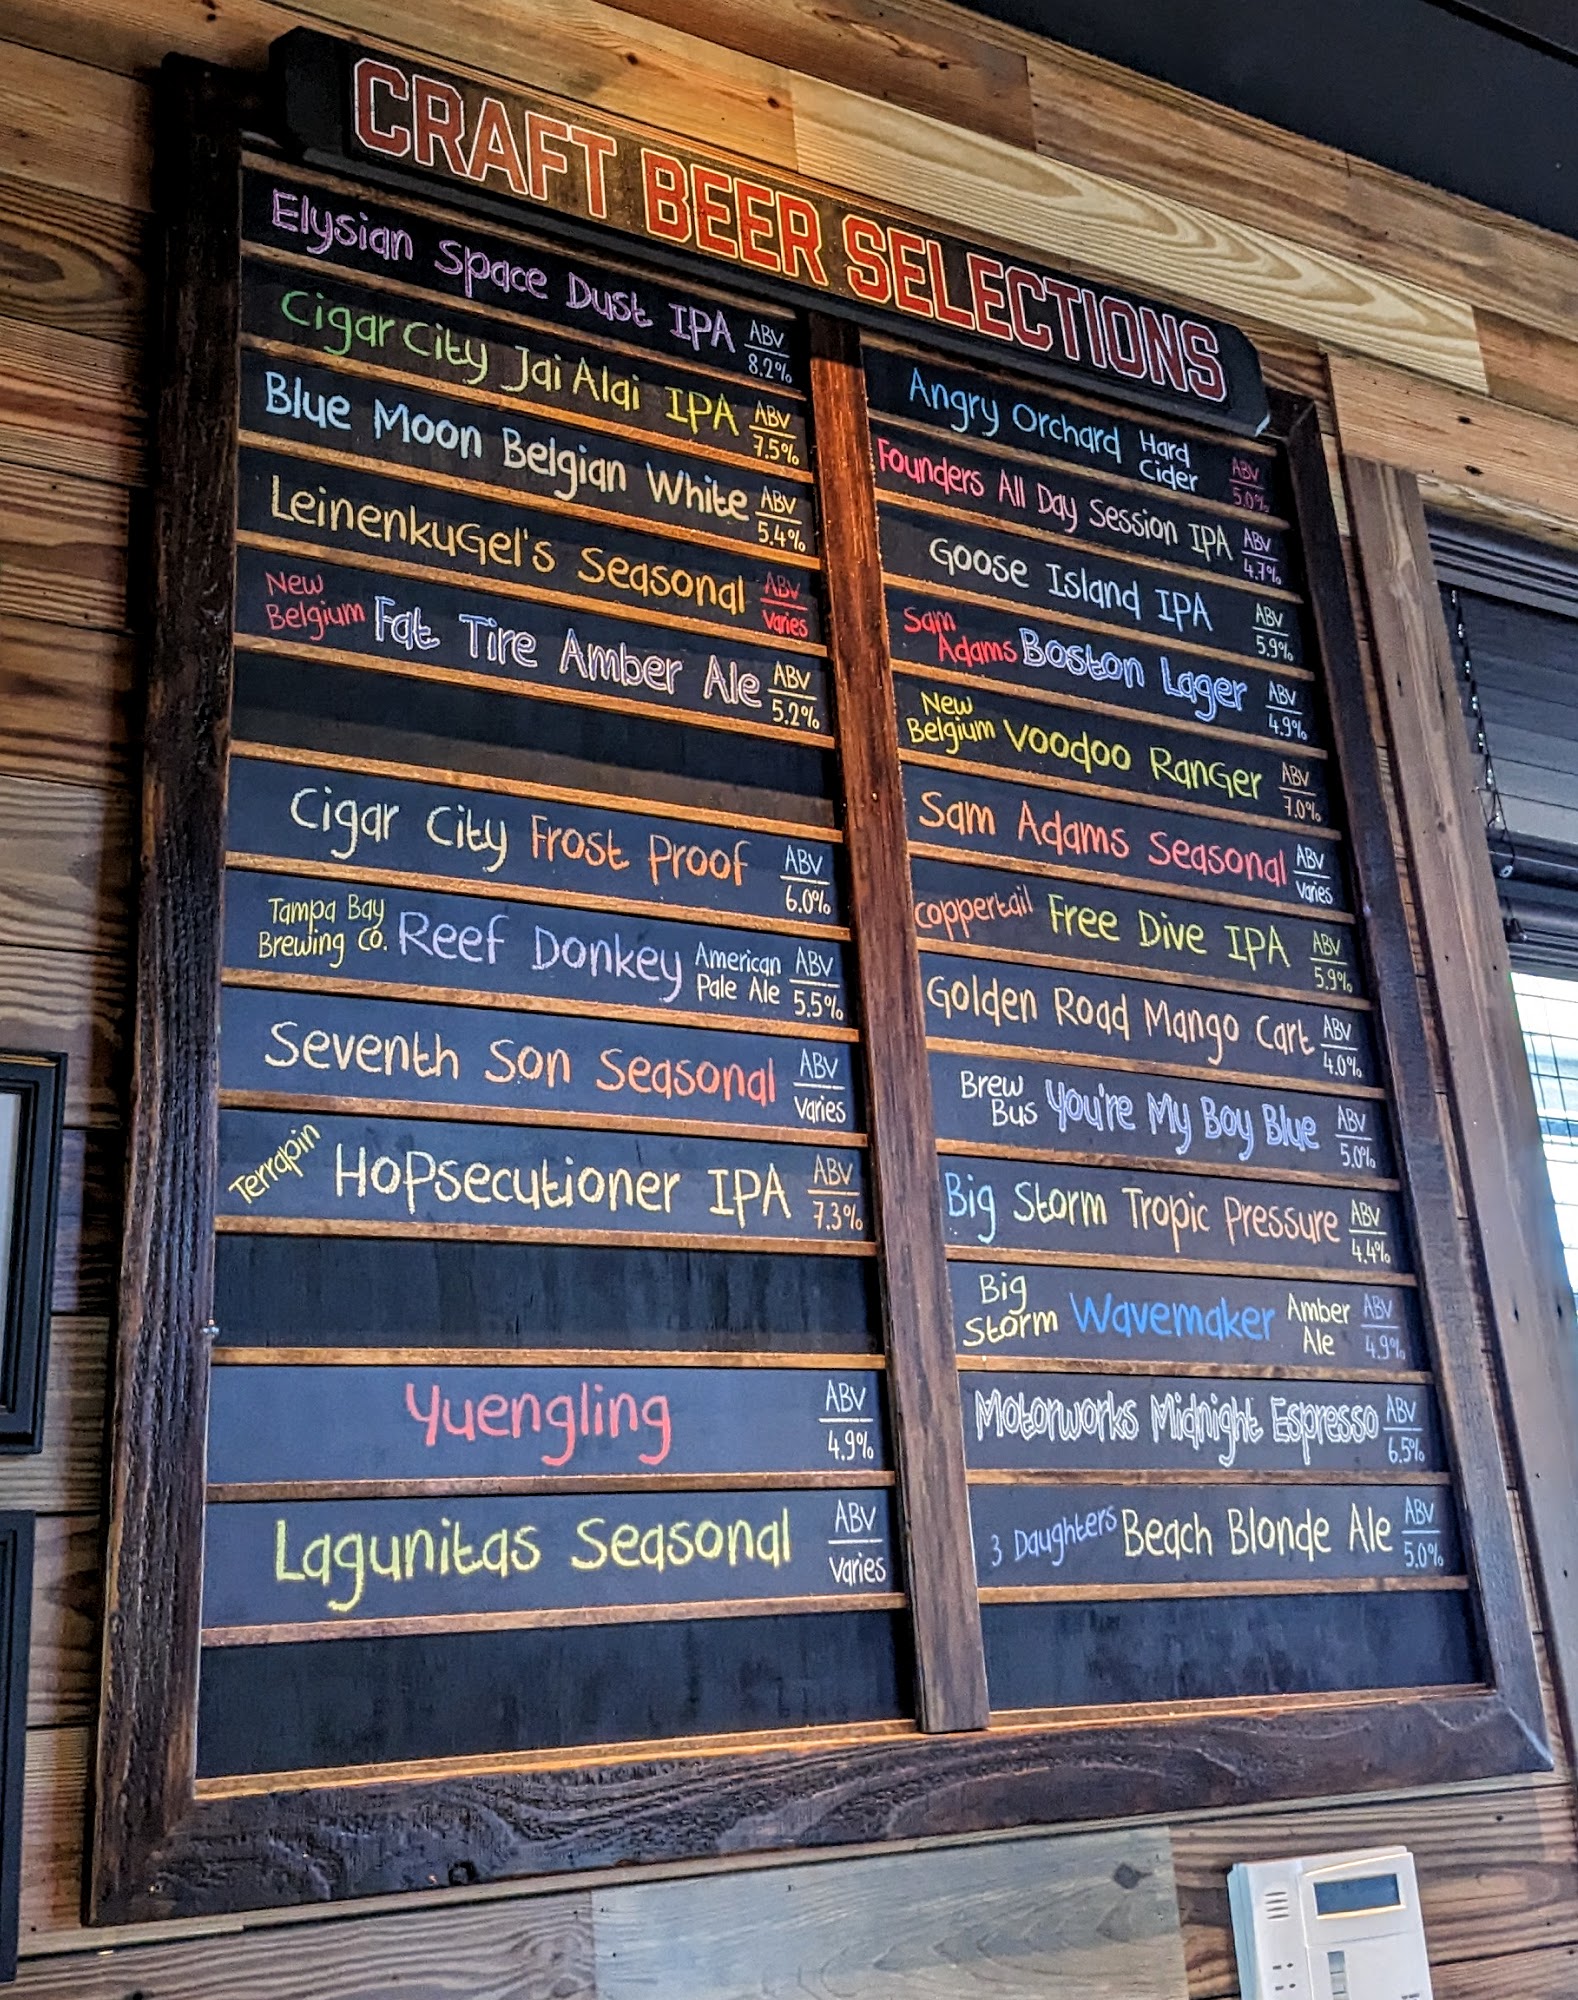 CRAFT BEER SELECTIONS
Elysian Space Dust IPA ABV 8.2%
Cigar City Jai Alai IPA ABV 7.5%
Blue Moon Belgian White ABV 5.4%
LeinenkuGel's Seasonal ABV Varies
New Belgium Fat Tire Amber Ale ABV 5.2%
Cigar City Frost Proof ABV 6.0%
Tampa Bay Brewing Co. Reef Donkey American Pale Ale ABV 5.5%
Seventh Son Seasonal ABV Varies
Terrapin HoPsecutioner IPA ABV 7.3%
Yuengling ABV 4.9%
Lagunitas Seasonal ABV Varies
Angry Orchard Hard Cider ABV 5.0%
Founders All Day Session IPA ABV 4.7%
Goose Island IPA ABV 5.9%
Sam Adams Boston Lager ABV 4.9%
New Belgium Voodoo RanGer ABV 7.0%
Sam Adams Seasonal ABV Varies
Coppertail Free Dive IPA ABV 5.9%
Golden Road Mango Cart ABV 4.0%
Brew Bus You're My Boy Blue ABV 5.0%
Big Storm Tropic Pressure ABV 4.4%
Big Storm Wavemaker Amber Ale ABV 4.9%
Motorworks Midnight Espresso ABV 6.5%
3 Daughters Beach Blonde Ale ABV 5.0%